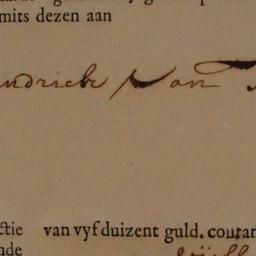 mits dezen aan
ndrick Van
ctie van vyf duizent guld. couran
nde